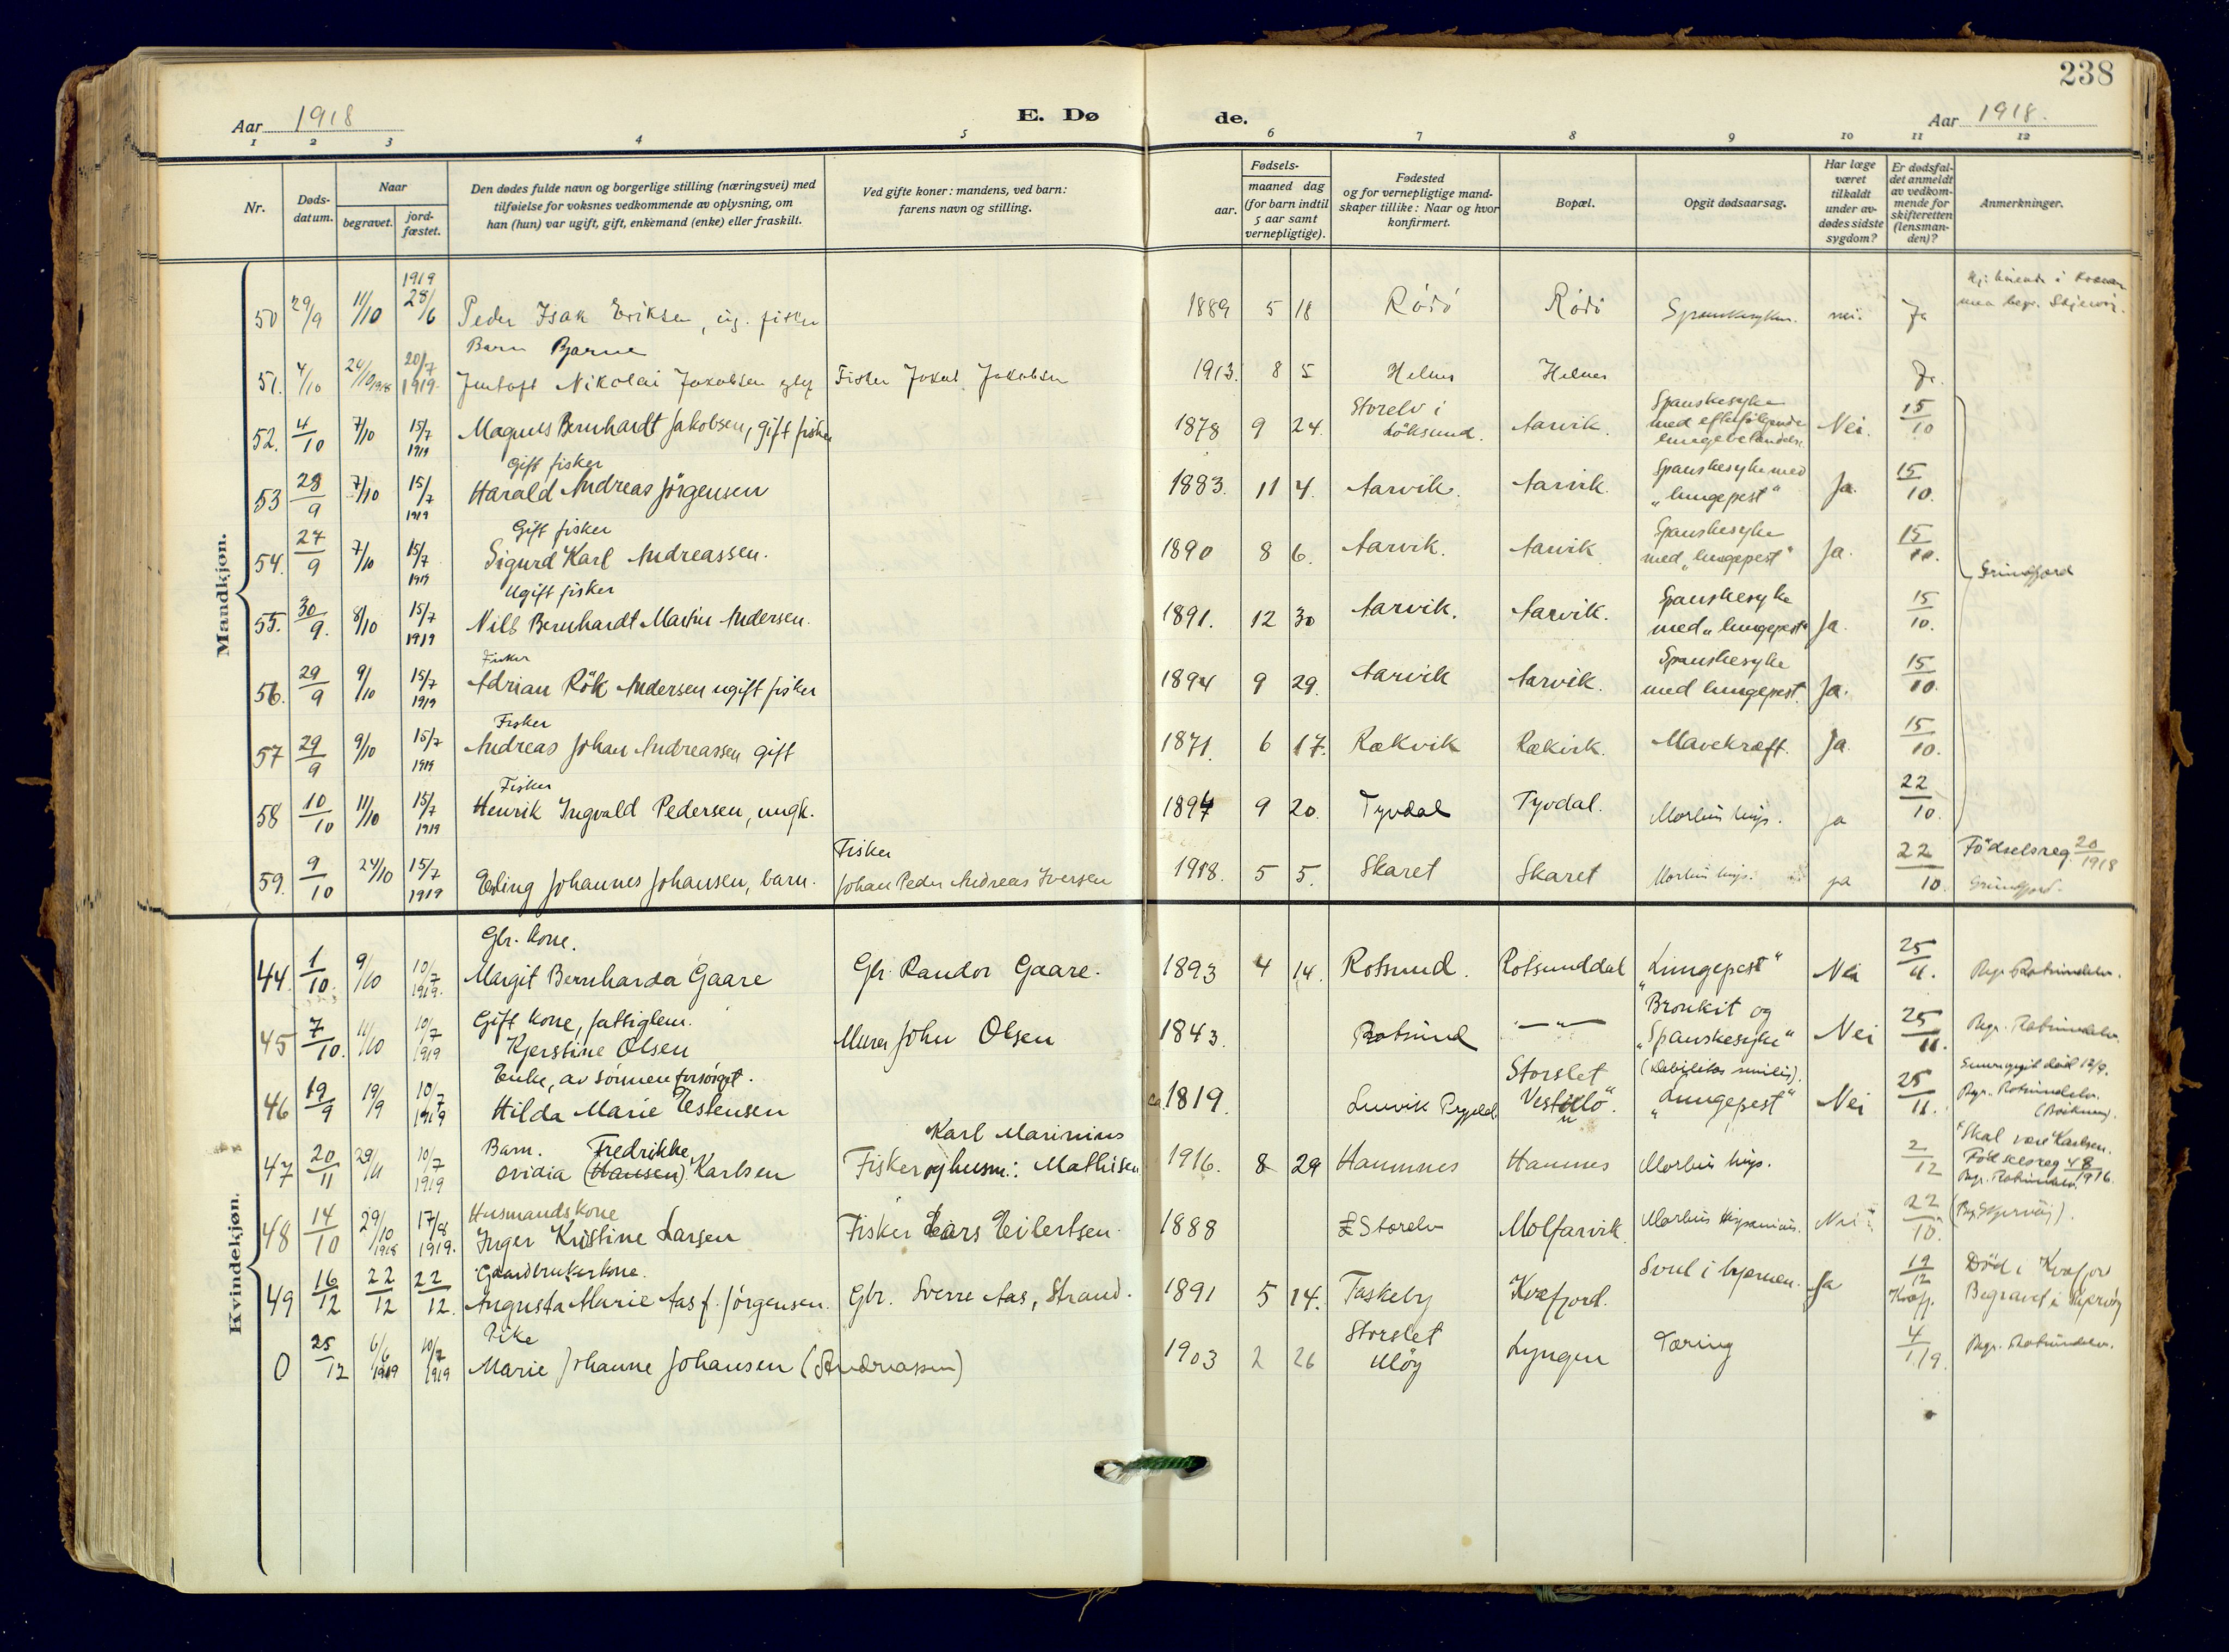 238
Aar 1918
E. Dø de.
Aar 1918.
1 2 3 4 5 6 7 8 9 10 11 12
Nr.
Døds-
datum.
Naar
begravet.
jord-
fæstet.
Den dødes fulde navn og borgerlige stilling (næringsvei) med
tilføielse for voksnes vedkommende av oplysning, om
han (hun) var ugift, gift, enkemand (enke) eller fraskilt.
Ved gifte koner: mandens, ved barn:
farens navn og stilling.
Fødsels-
aar.
maaned dag
(for barn indtil
5 aar samt
vernepligtige).
Fødested
og for vernepligtige mand-
skaper tillike: Naar og hvor
konfirmert.
Bopæl.
Opgit dødsaarsag.
Har læge
været
tilkaldt
under av-
dødes sidste
sygdom?
Er dødsfal-
det anmeldt
av vedkom-
mende for
skifteretten
(lensman-
den)?
Anmerkninger.
Mandkjøn.
50 29/9 11/10 1919 28/6 Peder Isak Eriksen, ug. fisker 1889 5 18 Rödö Rödö Spanskesyken. nei. Ja
men begr. Skjervøy.
Barn Bjarne
51. 4/10 24/10 1918 20/7 1919 Nikolai Jakobsen Fisker Jakob Jakobsen 1913. 8 5 Helnes Helnes Ja.
52. 4/10 7/10 15/7 1919 Magnus Bernhardt Jakobsen, gift fisker 1878 9 24. Storelv i Löksund. Aarvik. Spanskesyke med efterfölgende lungebetændelse Nei. 15/10
Gift fisker
53 28/9 7/10 15/7 1919 Harald Andreas Jörgensen 1883. 11 4. Aarvik. Aarvik. Spanskesyke med "lungepest" Ja. 15/10.
Gift fisker
54. 27/9 7/10 15/7 1919 Sigurd Karl Andreassen. 1890 8 6. Aarvik. Aarvik Spanskesyke med "lungepest" Ja. 15/10.
Grindfjord
Ugift fisker
55. 30/9. 8/10 15/7 1919 Nils Bernhardt Martin Andersen. 1891. 12 30 Aarvik. Aarvik. Spanskesyke med "lungepest" Ja. 15/10.
Fisker
56. 29/9 9/10 15/7 1919 Adrian Rök Andersen ugift fisker 1894 9 29. Aarvik Aarvik. Spanskesyke med lungepest. Ja. 15/10.
Fisker
57 29/9 9/10 15/7 1919 Andreas Johan Andreassen gift 1871. 6 17. Rækvik Rækvik. Mavekræft. Ja. 15/10.
Fisker
58 10/10 11/10 15/7 1919 Henrik Ingvald Pedersen, ungk. 1894 9 20. Tyvdal Tyvdal. Morbus hisp. ja 22/10.
59. 9/10 24/10 15/7 1919 Erling Johannes Johansen, barn. Fisker Johan Peder Andreas Iversen 1918. 5 5. Skaret Skaret Morbus hisp. ja 22/10. Födselsreg. 20/1918 Grindfjord.
Kvindekjøn.
Gbr. kone.
44. 1/10. 9/10 10/7 1919. Margit Bernharda Gaare Gbr. Randor Gaare. 1893 4 14. Rotsund. Rotsunddal "Lungepest" Nei 25/11. Begr. Rotsundelv.
Gift kone, fattiglem.
45 7/10. 11/10 10/7 1919 Kjerstine Olsen Murer John Olsen 1843. Rotsund —"— Bronkit og "Spanskesyke" Nei 25/11. Begr. Rotsundelv.
Enke, av sönnen forsörget.
46 19/9 19/9 10/7 1919 Hilda Marie Estensen ca 1819. Storslet (debilitas senilis). "Lungepest" Nei 25/11. Begr. Rotsundelv.
Barn. Fredrikke
47 20/11 29/11 10/7 1919 Ovidia (Hansen) Karlsen Fisker og husm.: Karl Marinius Mathisen 1916. 8 29 Hamnnes Hamnes Morbus hisp. 2/12 Skal være Karlsen. Födselsreg 48/1916. Begr. Rotsundelv.
Husmandskone
48 14/10 29/10 1918 17/8 1919. Inger Kristine Larsen Fisker Lars Eilertsen. 1888 Storelv Molfarvik Morbus hispanicus. Nei 22/10. (Begr. Skjervöy).
Gaardbrukerkone.
49 16/12 22/12 22/12. Augusta Marie Aas f. Jörgensen. Gbr. Sverre Aas, Strand. 1891 5 14. Taskeby Kvæfjord. Svul i hjernen. Ja 19/12 Kvæfj. Död i Kvæfjord Begravet i Skjervöy
Pike
0 25/12 6/6 1919 10/7 1919 Marie Johanne Johansen (Andreassen) 1903 2 26 Storslet Ulöy Lyngen Tæring 4/1 19. Begr. Rotsundelv.